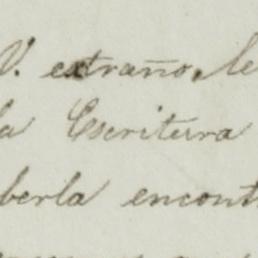 V. extraño, le
la Escritura
berla encont